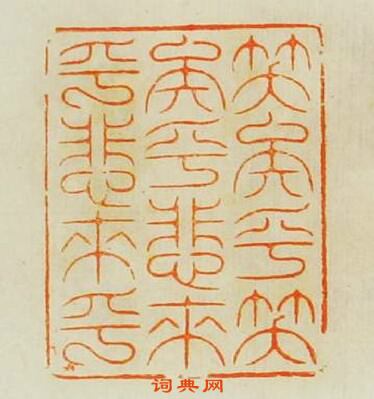 笑矣乎笑
矣乎悲來
乎悲來乎
词典网